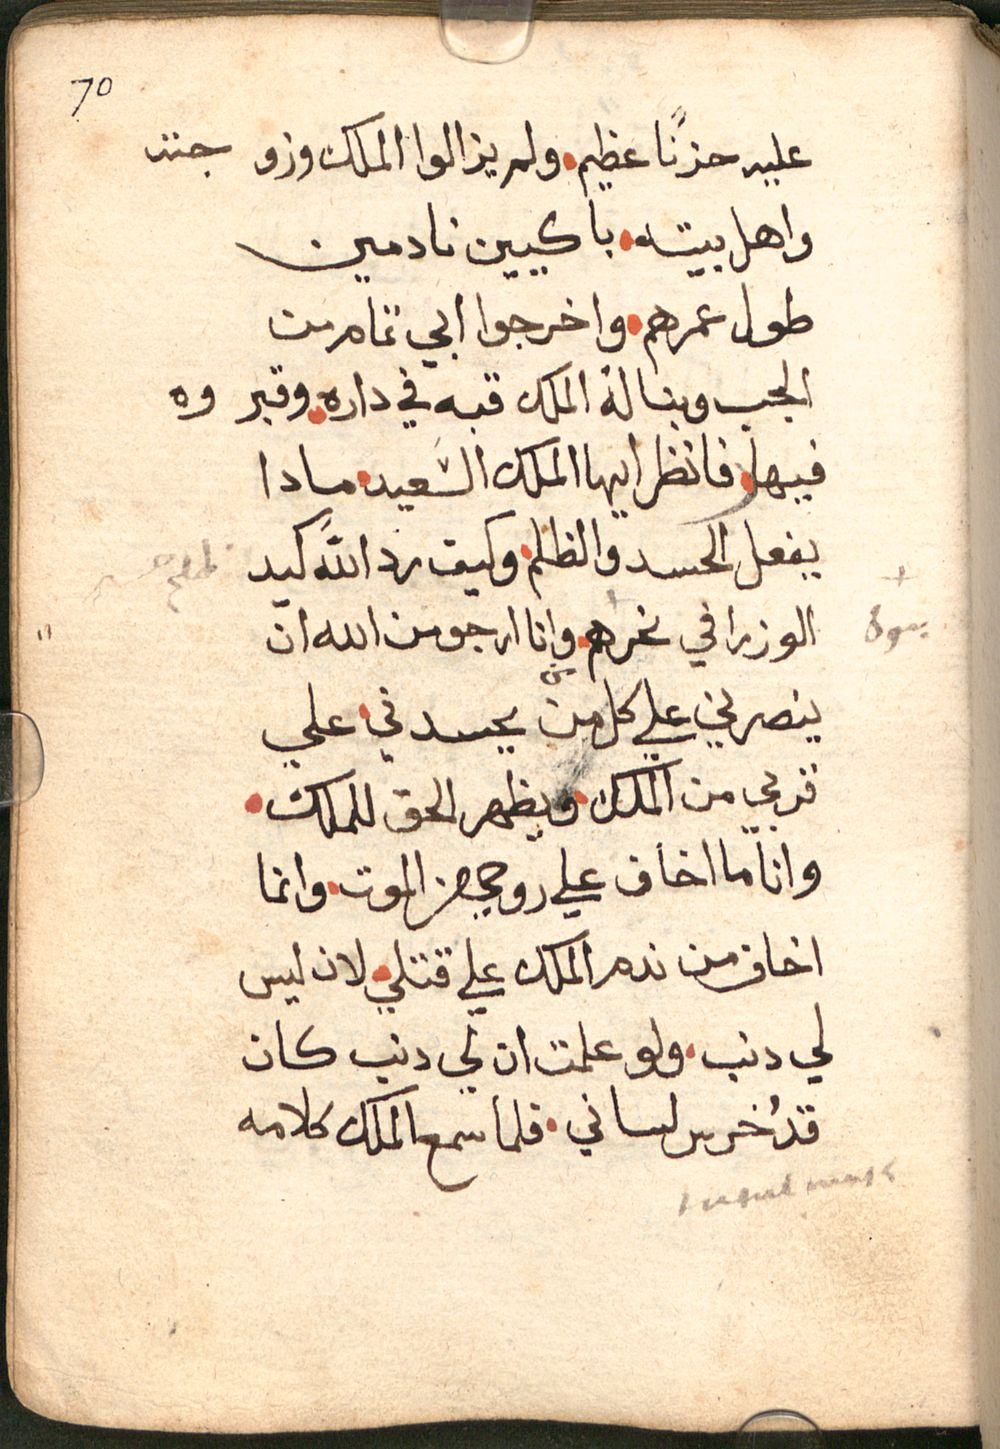 70
عليه حزنًا عظيم ولم يزالوا الملك وزو جته
واهل بيته باكيين نادمين
طول عمرهم واخرجوا ابي تمام من
الجب وبنا له الملك قبه في داره وقبر وه
فيها فانظر ايها الملك السعيد مادا
يفعل الحسد والظلم وكيف رد الله كيد
الوزرا في نحرهم وانا ارجو من الله ان
ينصرني علي كل من يحسدني علي
قربي من الملك ويظهر الحق للملك
وانا ما اخاف علي روحي من الموت وانما
اخاف من ندم الملك علي قتلي لان ليس
لي دنب ولو علمت ان لي دنب كان
قد خرس لساني فلما سمع الملك كلامه